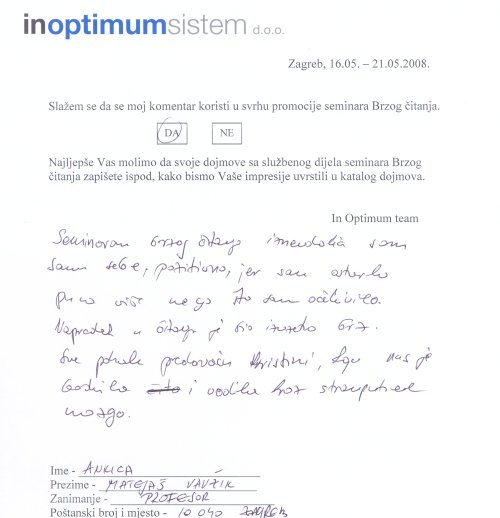 inoptimumsistem d.o.o.
Zagreb, 16.05. – 21.05.2008.
Slažem se da se moj komentar koristi u svrhu promocije seminara Brzog čitanja.
DA NE
Najljepše Vas molimo da svoje dojmove sa službenog dijela seminara Brzog
čitanja zapišete ispod, kako bismo Vaše impresije uvrstili u katalog dojmova.
In Optimum team
Seminarom brzog čitanja iznenadila sam
samu sebe, pozitivno, jer sam
puno više nego što sam očekivala.
Napredak u čitanju je bio izuzetno brz.
Sve predavaču Kristini, koja nas je
i vodila kroz
mozga.
Ime - ANKICA
Prezime - MATEJAŠ
Zanimanje - PROFESOR
Poštanski broj i mjesto - 10 040 ZAGREB